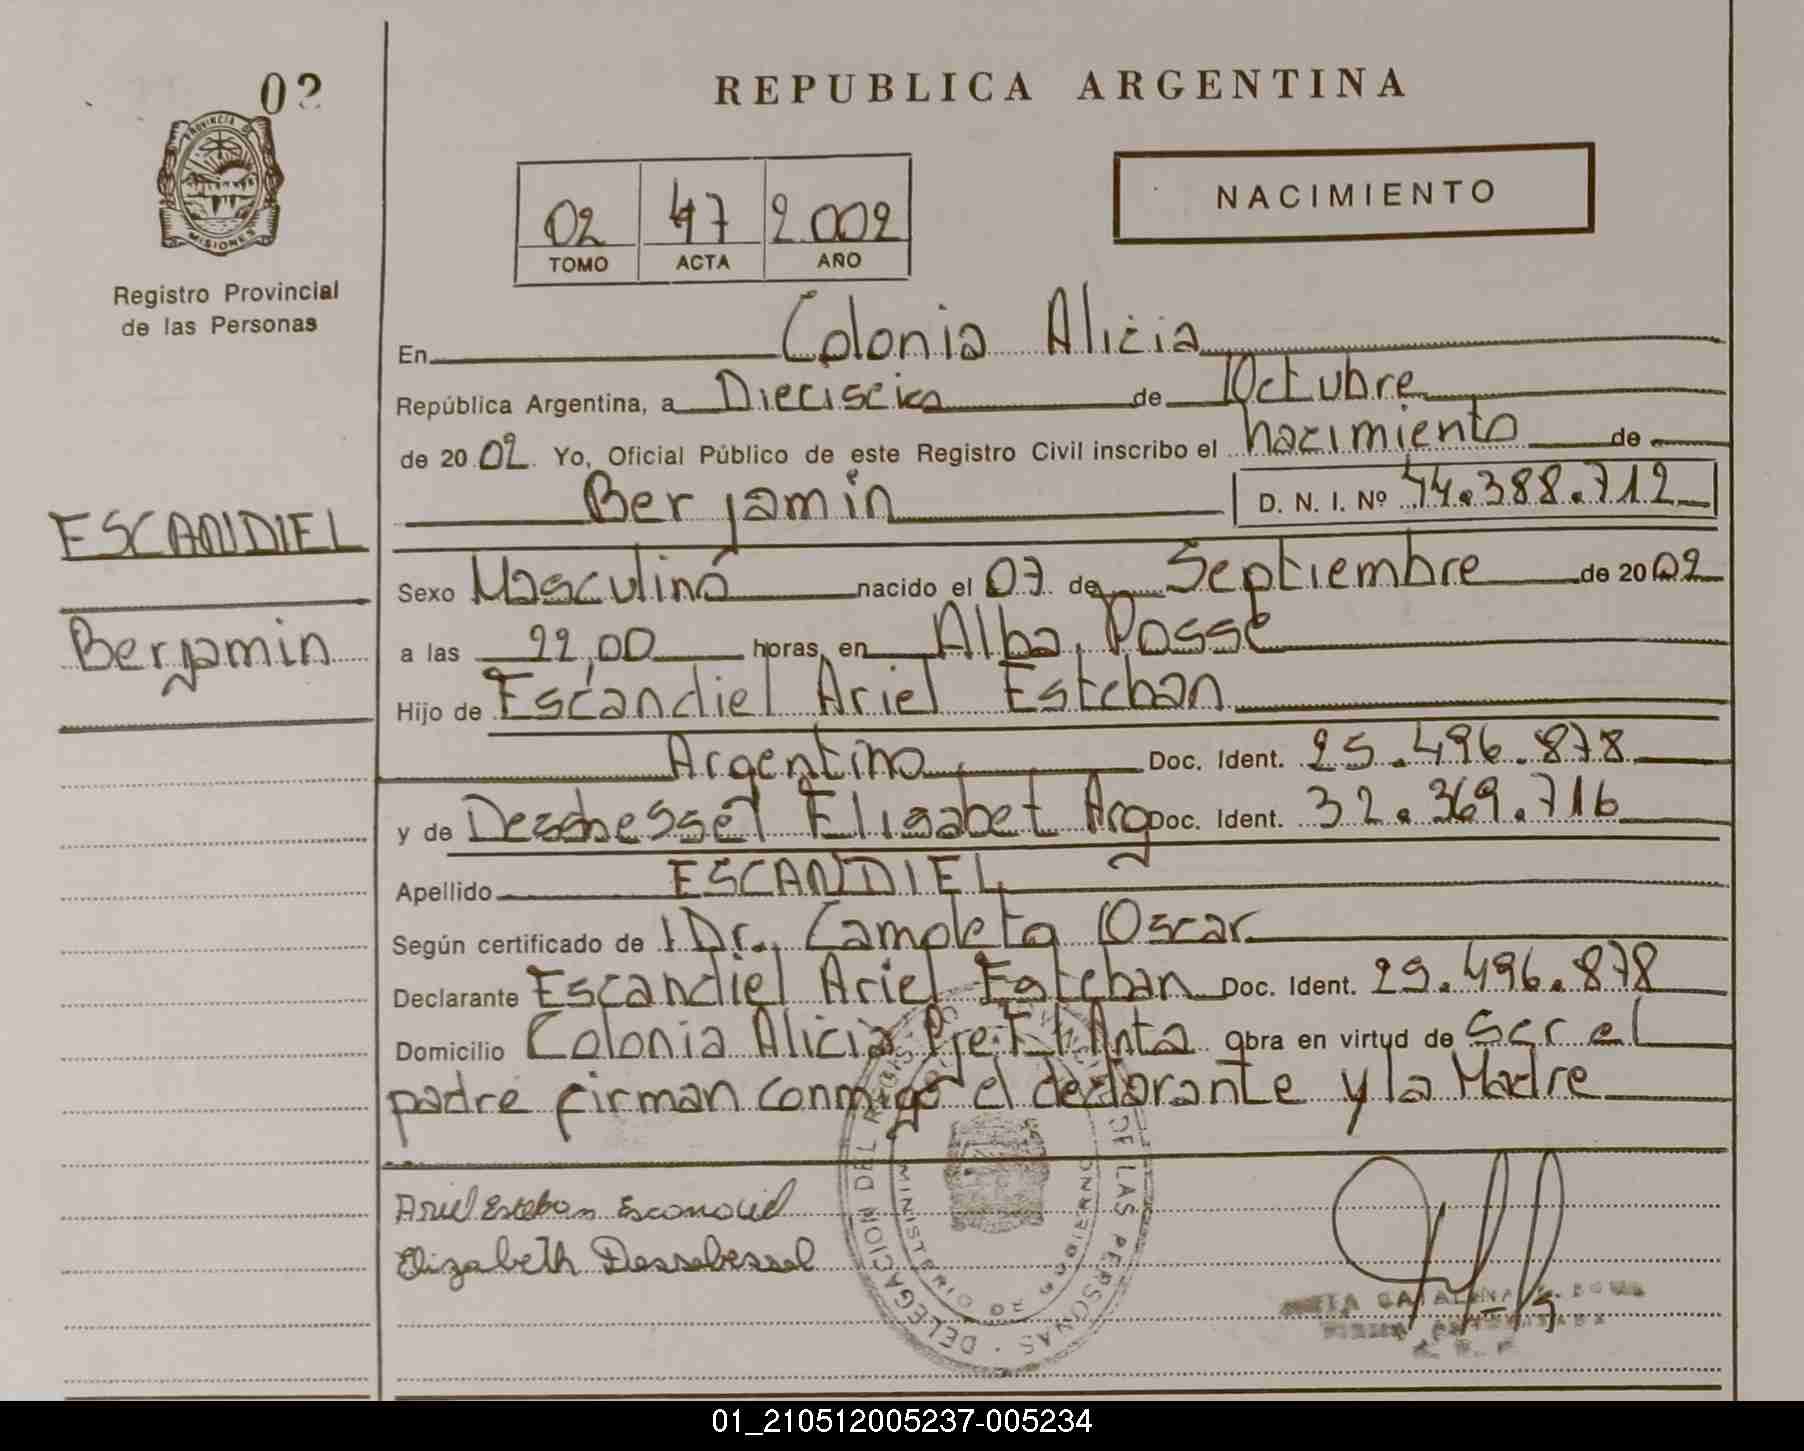 02
PROVINCIA DE
MISIONES
Registro Provincial
de las Personas
ESCANDIEL
Benjamin
REPUBLICA ARGENTINA
02 47 2.002
TOMO ACTA AÑO
NACIMIENTO
En Colonia Alicia
República Argentina, a Dieciseis de Octubre
de 2002. Yo, Oficial Público de este Registro Civil inscribo el nacimiento de
Benjamin D. N. I. Nº 44.388.712
Sexo Masculino nacido el 07 de Septiembre de 2002
a las 22,00 horas, en Alba Posse
Hijo de Escandiel Ariel Esteban
Argentino Doc. Ident. 25.496.878
y de Elisabet Arg Doc. Ident. 32.369.716
Apellido ESCANDIEL
Según certificado de Dr. Campleto Oscar
Declarante Escandiel Ariel Esteban Doc. Ident. 25.496.878
Domicilio Colonia Alicia obra en virtud de ser el
padre firman conmigo el declarante y la Madre
Ariel Esteban Escandiel
Elizabeth
DELEGACION DEL DE LAS PERSONAS
MINISTERIO DE GOBIERNO
01_210512005237-005234